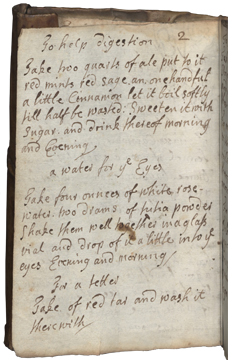 To help digestion 2
Take two quarts of ale put to it
red mints red sage an one handful
a little Cinnamon let it boil softly
till half be wasted. Sweeten it with
Sugar and drink thereof morning
and Evening
a water for yᵉ Eyes
Take four ounces of white rose-
water. two drams of tutia powder
Shake them well together in a glass
vial and drop of it a little into yᵉ
eyes Evening and morning
For a tetter
Take of red tar and wash it
therewith